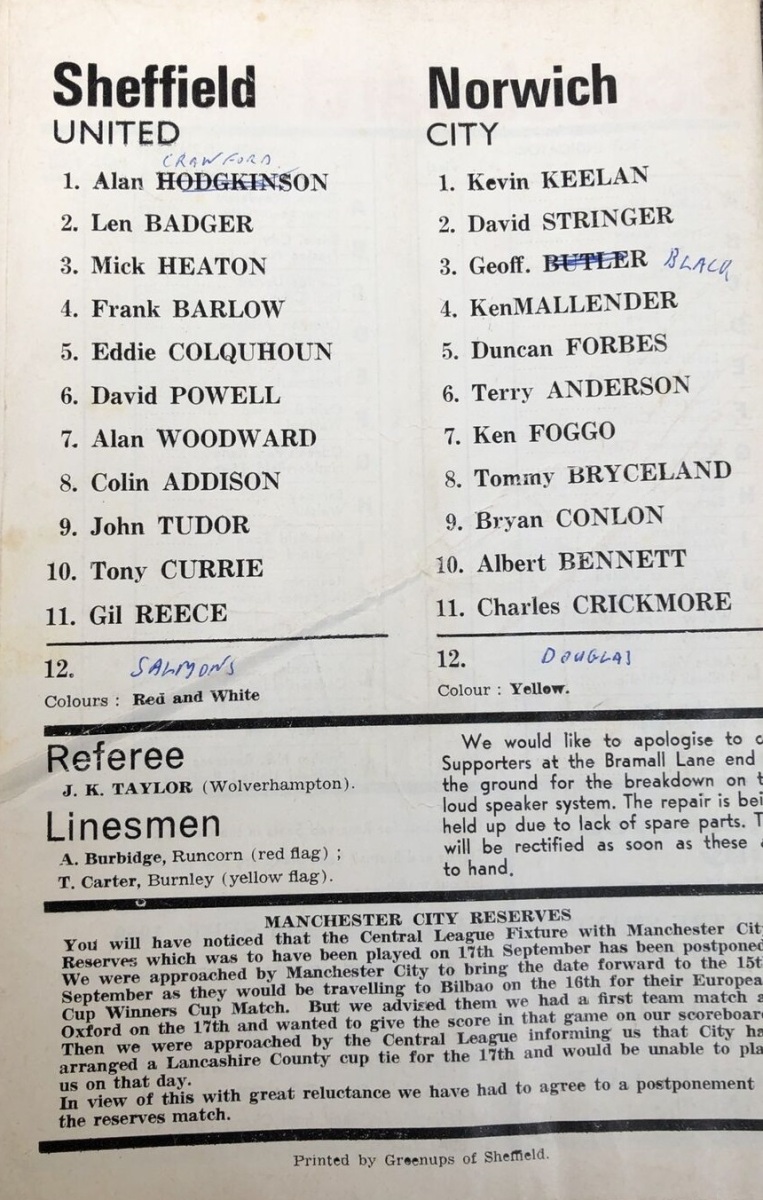 Sheffield
UNITED
CRAWFORD
1. Alan HODGKINSON
2. Len BADGER
3. Mick HEATON
4. Frank BARLOW
5. Eddie COLQUHOUN
6. David POWELL
7. Alan WOODWARD
8. Colin ADDISON
9. John TUDOR
10. Tony CURRIE
11. Gil REECE
12. SALMONS
Colours : Red and White
Norwich
CITY
1. Kevin KEELAN
2. David STRINGER
3. Geoff. BUTLER BLACK
4. KenMALLENDER
5. Duncan FORBES
6. Terry ANDERSON
7. Ken FOGGO
8. Tommy BRYCELAND
9. Bryan CONLON
10. Albert BENNETT
11. Charles CRICKMORE
12. DOUGLAS
Colour : Yellow.
Referee
J. K. TAYLOR (Wolverhampton).
Linesmen
A. Burbidge, Runcorn (red flag) ;
T. Carter, Burnley (yellow flag).
We would like to apologise to
Supporters at the Bramall Lane end
the ground for the breakdown on
loud speaker system. The repair is bei
held up due to lack of spare parts. T
will be rectified as soon as these
to hand.
MANCHESTER CITY RESERVES
You will have noticed that the Central League Fixture with Manchester Cit
Reserves which was to have been played on 17th September has been postponed
We were approached by Manchester City to bring the date forward to the 15t
September as they would be travelling to Bilbao on the 16th for their Europea
Cup Winners Cup Match. But we advised them we had a first team match a
Oxford on the 17th and wanted to give the score in that game on our scoreboar
Then we were approached by the Central League informing us that City ha
arranged a Lancashire County cup tie for the 17th and would be unable to pla
us on that day.
In view of this with great reluctance we have had to agree to a postponement
the reserves match.
Printed by Greenups of Sheffield.